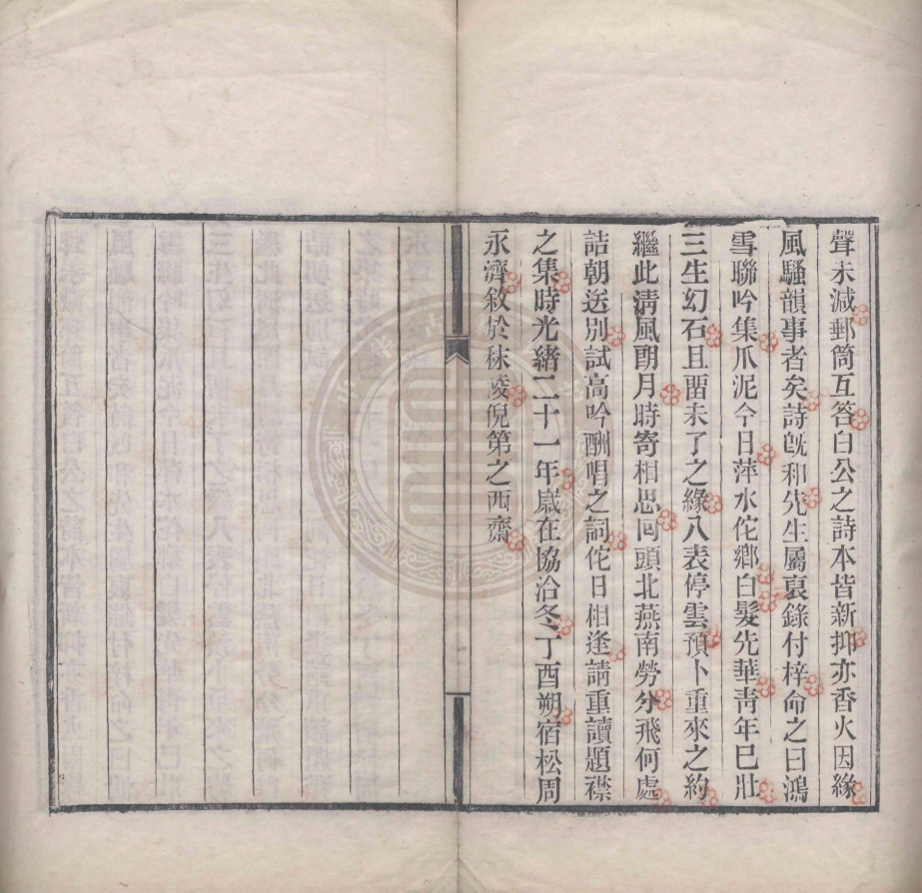 聲未減郵筒互答白公之詩本皆新抑亦香火因緣
風騷韻事者矣詩旣和先生屬裒錄付梓命之曰鴻
雪聯吟集爪泥今日萍水佗鄉白髮先華靑年已壯
三生幻石且畱未了之緣八表停雲預卜重來之約
繼此淸風朗月時寄相思囘頭北燕南勞分飛何處
詰朝送別試高吟酬唱之詞佗日相逢請重讀題襟
之集時光緒二十一年歲在協洽冬丁酉朔宿松周
永濟敘於秣陵倪第之西齋